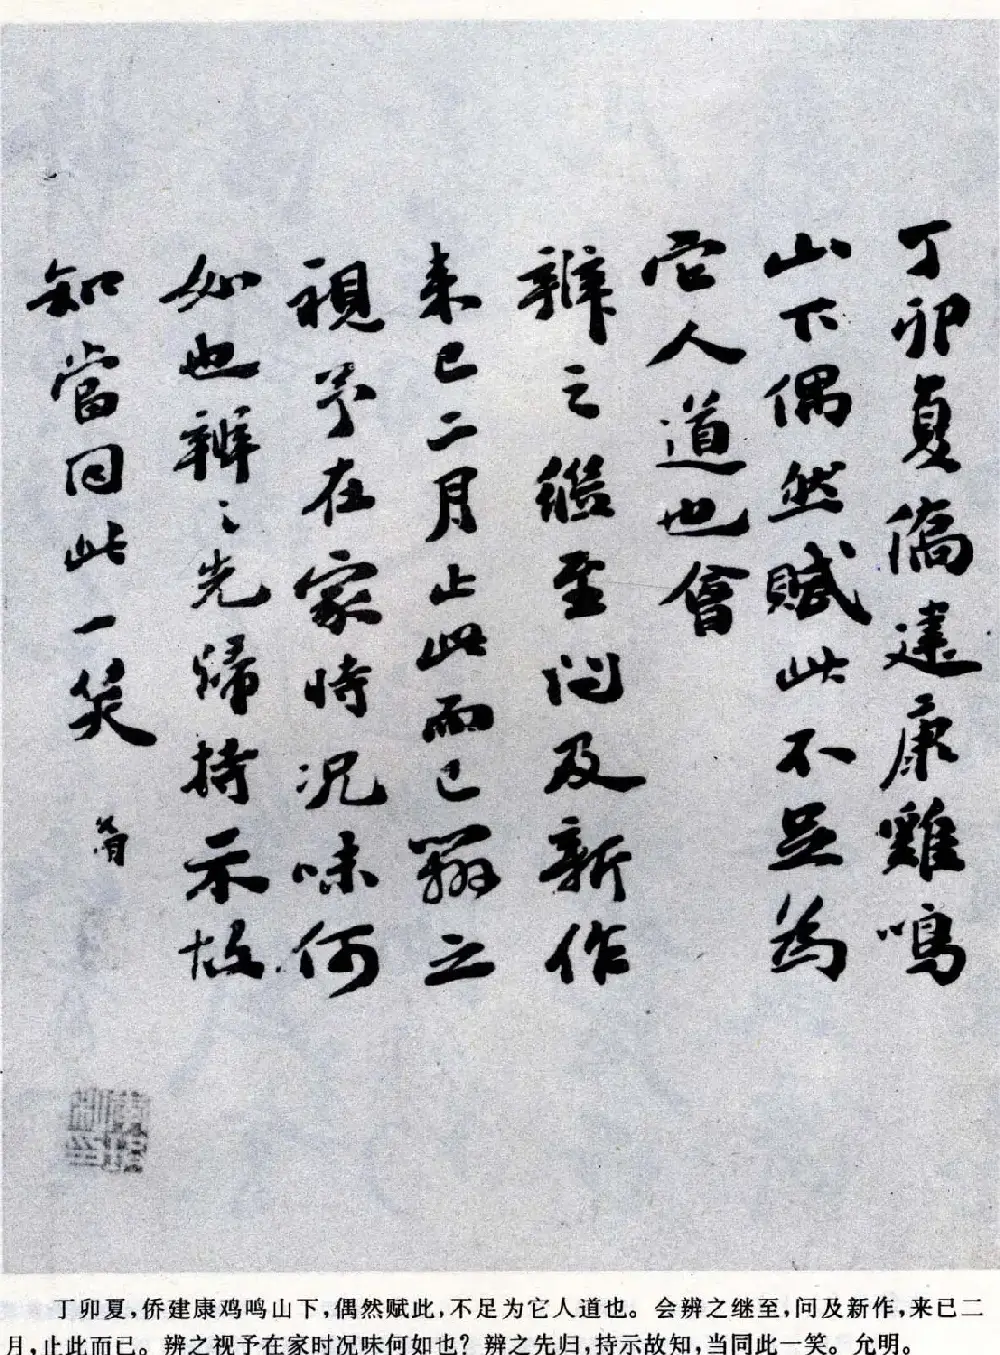 丁卯夏僑建康雞鳴
山下偶然賦此不足為
它人道也會
辨之繼至問及新作
来已二月止此而已辨之
視予在家時况味何
如也辨之先歸持示故
知當同此一笑 允明
丁卯夏，侨建康鸡鸣山下，偶然赋此，不足为它人道也。会辨之继至，问及新作，来已二
月，止此而已。辨之视予在家时况味何如也？辨之先归，持示故知，当同此一笑。允明。